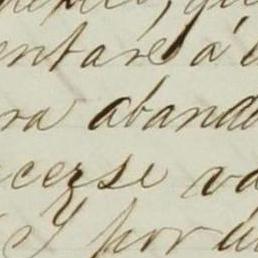 entaré á
ra aband
cerse va
Y por ú